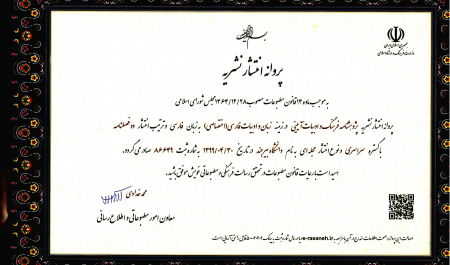 جمهوری اسلامی ایران
وزارت فرهنگ و ارشاد اسلامی
پروانه انتشار نشریه
به موجب ماده ۱۳ قانون مطبوعات مصوب ۱۳۶۴/۱۲/۲۸ مجلس شورای اسلامی
پروانه انتشار نشریه پژوهشنامه فرهنگ و ادبیات آیینی در زمینه زبان و ادبیات فارسی (اختصاصی) به زبان فارسی و ترتیب انتشار دو فصلنامه
با گستره سراسری و نوع انتشار مجله ای به نام دانشگاه بیرجند در تاریخ ۱۳۹۹/۰۴/۳۰ به شماره ثبت ۸۶۶۴۹ صادر می گردد.
امید است با رعایت قانون مطبوعات در تحقق رسالت فرهنگی و مطبوعاتی خویش موفق باشید.
محمد خدادی
معاون امور مطبوعاتی و اطلاع رسانی